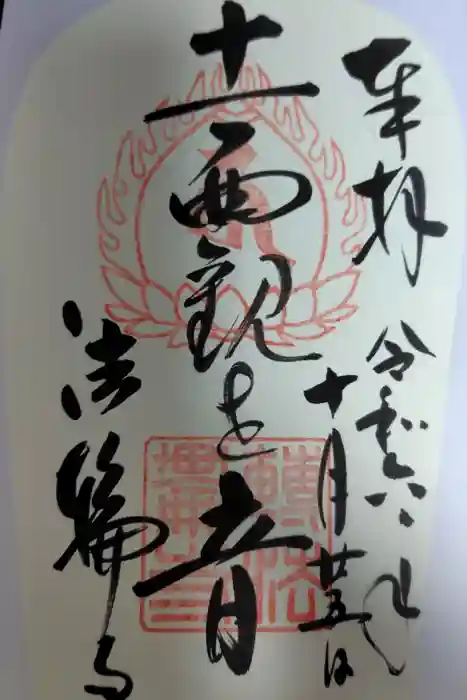 奉拝
令和六年
十月廿五日
十一面観世音
法輪寺